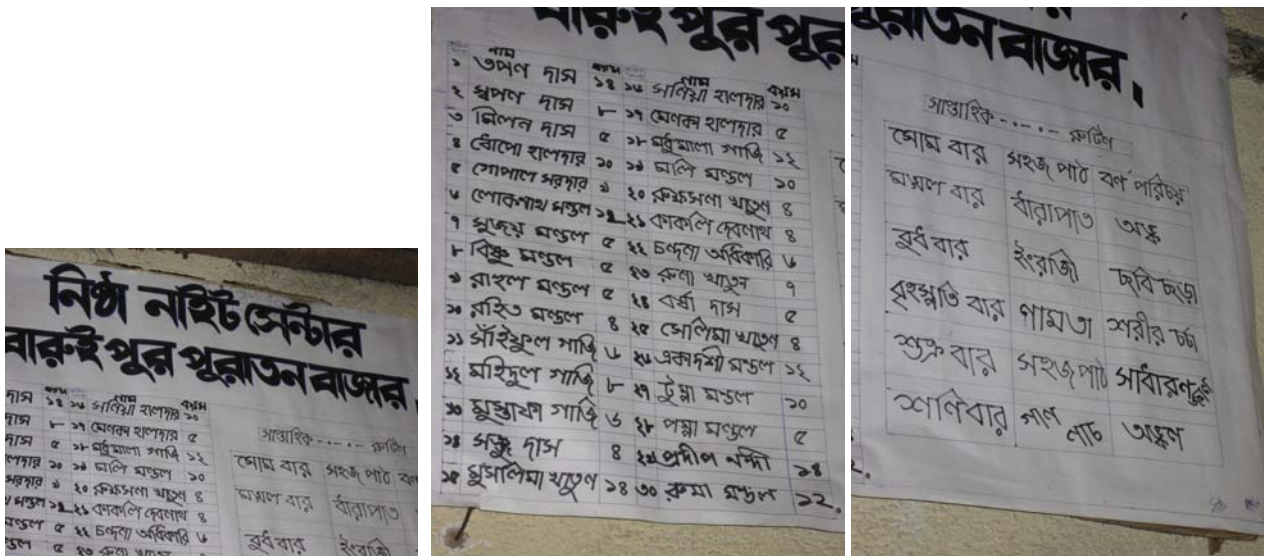 নিষ্ঠা নাইট সেন্টার
বারুইপুর পুরাতন বাজার
দাস ১৪ ১৬ সানিয়া হালদার ১০
দাস ৮ ১৭ মেনকা হালদার ৫
দাস ৫ ১৮ মধুমালা গাজি ১২
হালদার ১০ ১৯ মলি মণ্ডল ১০
সরদার ৯ ২০ রুকসনা খাতুন ৪
মন্ডল ১২ ২১ কাকলি দেবনাথ ৪
মন্ডল ৫ ২২ চন্দনা অধিকারি ৬
মন্ডল ৫ ২৩ রুনা খাতুন
সাপ্তাহিক -·-·- রুটিন
সোম বার সহজ পাঠ বর্ণ
মঙ্গল বার ধারাপাত
বুধ বার ইংরাজি
বারুইপুর পুর
নাম বয়স নাম বয়স
১ তপন দাস ১৪ ১৬ সানিয়া হালদার ১০
২ স্বপন দাস ৮ ১৭ মেনকা হালদার ৫
৩ মিলন দাস ৫ ১৮ মধুমালা গাজি ১২
৪ ধোপো হালদার ১০ ১৯ মলি মণ্ডল ১০
৫ গোপাল সরদার ৯ ২০ রুকসনা খাতুন ৪
৬ লোকনাথ মন্ডল ১২ ২১ কাকলি দেবনাথ ৪
৭ সুজয় মন্ডল ৫ ২২ চন্দনা অধিকারি ৬
৮ বিষ্ণু মন্ডল ৫ ২৩ রুনা খাতুন ৭
৯ রাহুল মন্ডল ৫ ২৪ বর্ষা দাস ৫
১০ রহিত মন্ডল ৪ ২৫ সেলিমা খাতুন ৪
১১ সাঁইফুল গাজি ৬ ২৬ একাদশী মন্ডল ১২
১২ মহিদুল গাজি ৮ ২৭ টুম্পা মন্ডল ১০
১৩ মুস্তাফা গাজি ৬ ২৮ পম্পা মন্ডল ৫
১৪ সন্তু দাস ৪ ২৯ প্রদীপ নন্দী ১৪
১৫ মুসলিমা খাতুন ১৪ ৩০ রুমা মন্ডল ১২.
পুরাতন বাজার।
সাপ্তাহিক -·-·- রুটিন
সোম বার সহজ পাঠ বর্ণ পরিচয়
মঙ্গল বার ধারাপাত অঙ্ক
বুধ বার ইংরাজি ছবি ছড়া
বৃহস্পতি বার নামতা শরীর চর্চা
শুক্র বার সহজ পাঠ সাধারণ
শনিবার গান নাচ অঙ্কন